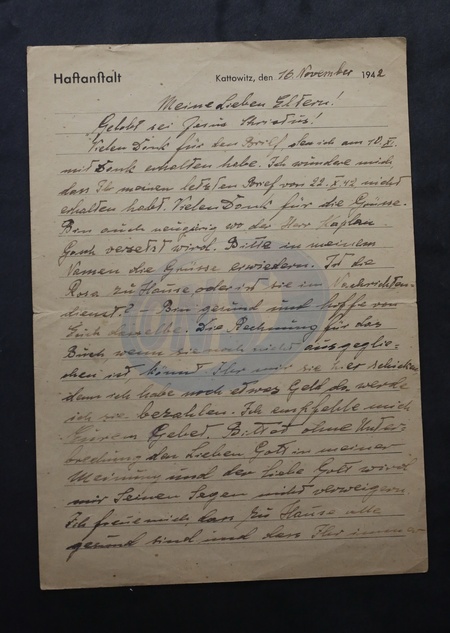 Haftanstalt
Kattowitz, den 16 November 1942
Meine Lieben Eltern!
Gelobt sei Jesus Christus!
Vielen Dank für den Brief den ich am 10. XI.
mit Dank erhalten habe. Ich wundere mich
dass Ihr meinen letzten Brief vom 22. X 42 nicht
erhalten habt. Vielen Dank für die Grüsse.
Bin auch neugierig wo der Herr Kaplan
versetzt wird. Bitte in meinem
Namen die Grüsse erwiedern. Ist die
Rosa zu Hause oder ist sie im Nachrichten-
dienst? Bin gesund und hoffe von
Euch dasselbe. Die Rechnung für das
Buch wenn sie noch nicht ausgegli-
chen ist könnt Ihr mir sie hier schicken
denn ich habe noch etwas Geld da werde
ich sie bezahlen. Ich empfehle mich
Eurem Gebet. Bittet ohne Unter-
brechung den Lieben Gott in meiner
Meinung und der Liebe Gott wird
mir Seinen Segen nicht verweigern.
Ich freue mich dass zu Hause alle
gesund sind und dass Ihr immer